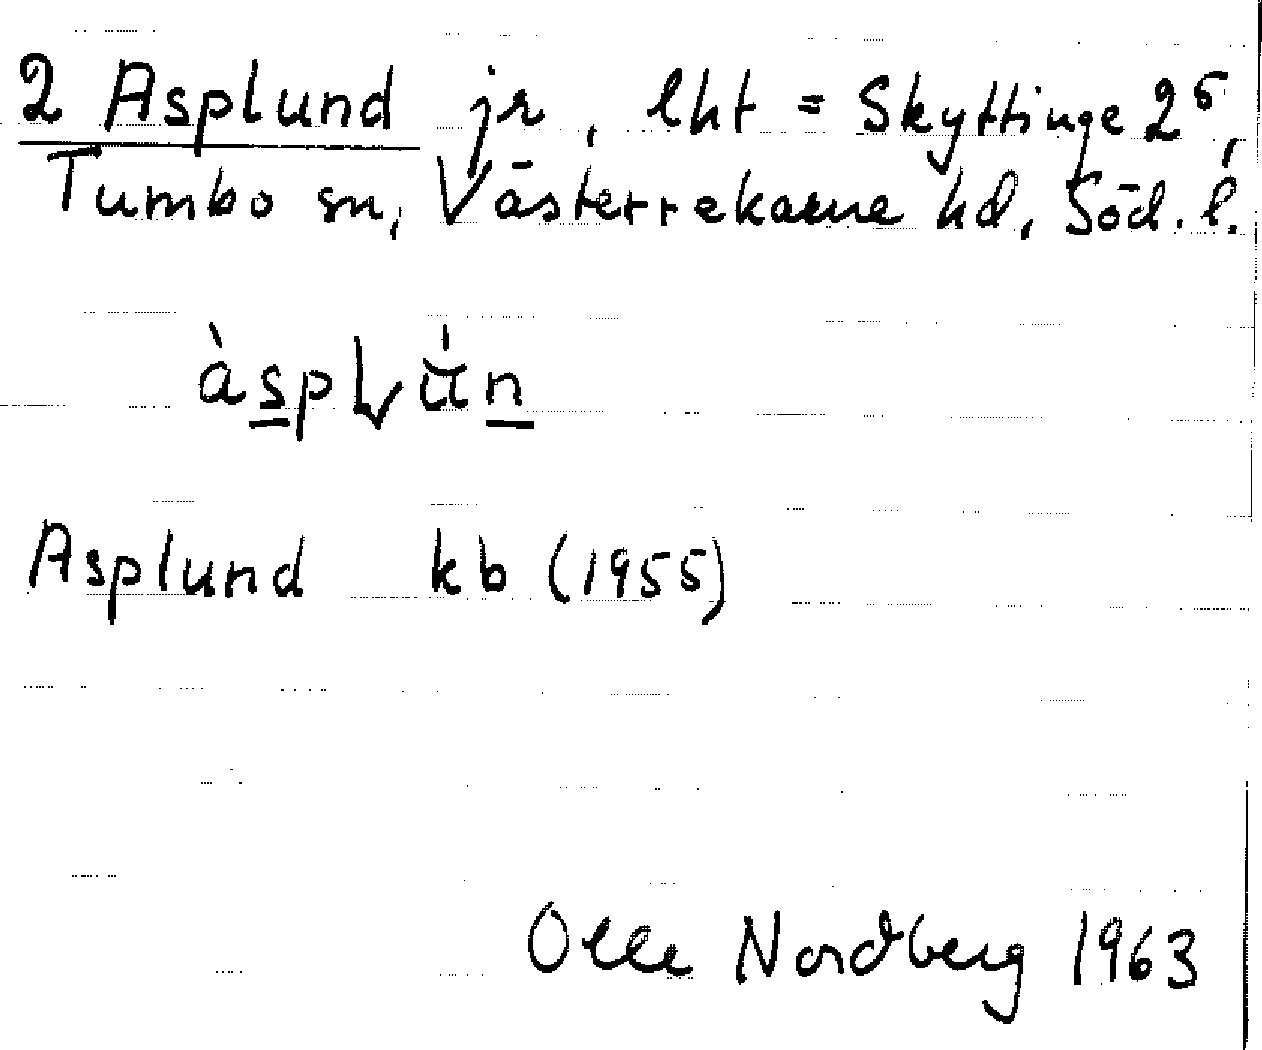 2 Asplund jr, lht = Skyttinge 2⁵,
Tumbo sn, Västerrekarne hd, Söd. l.
Asplund kb (1955)
Olle Nordberg 1963